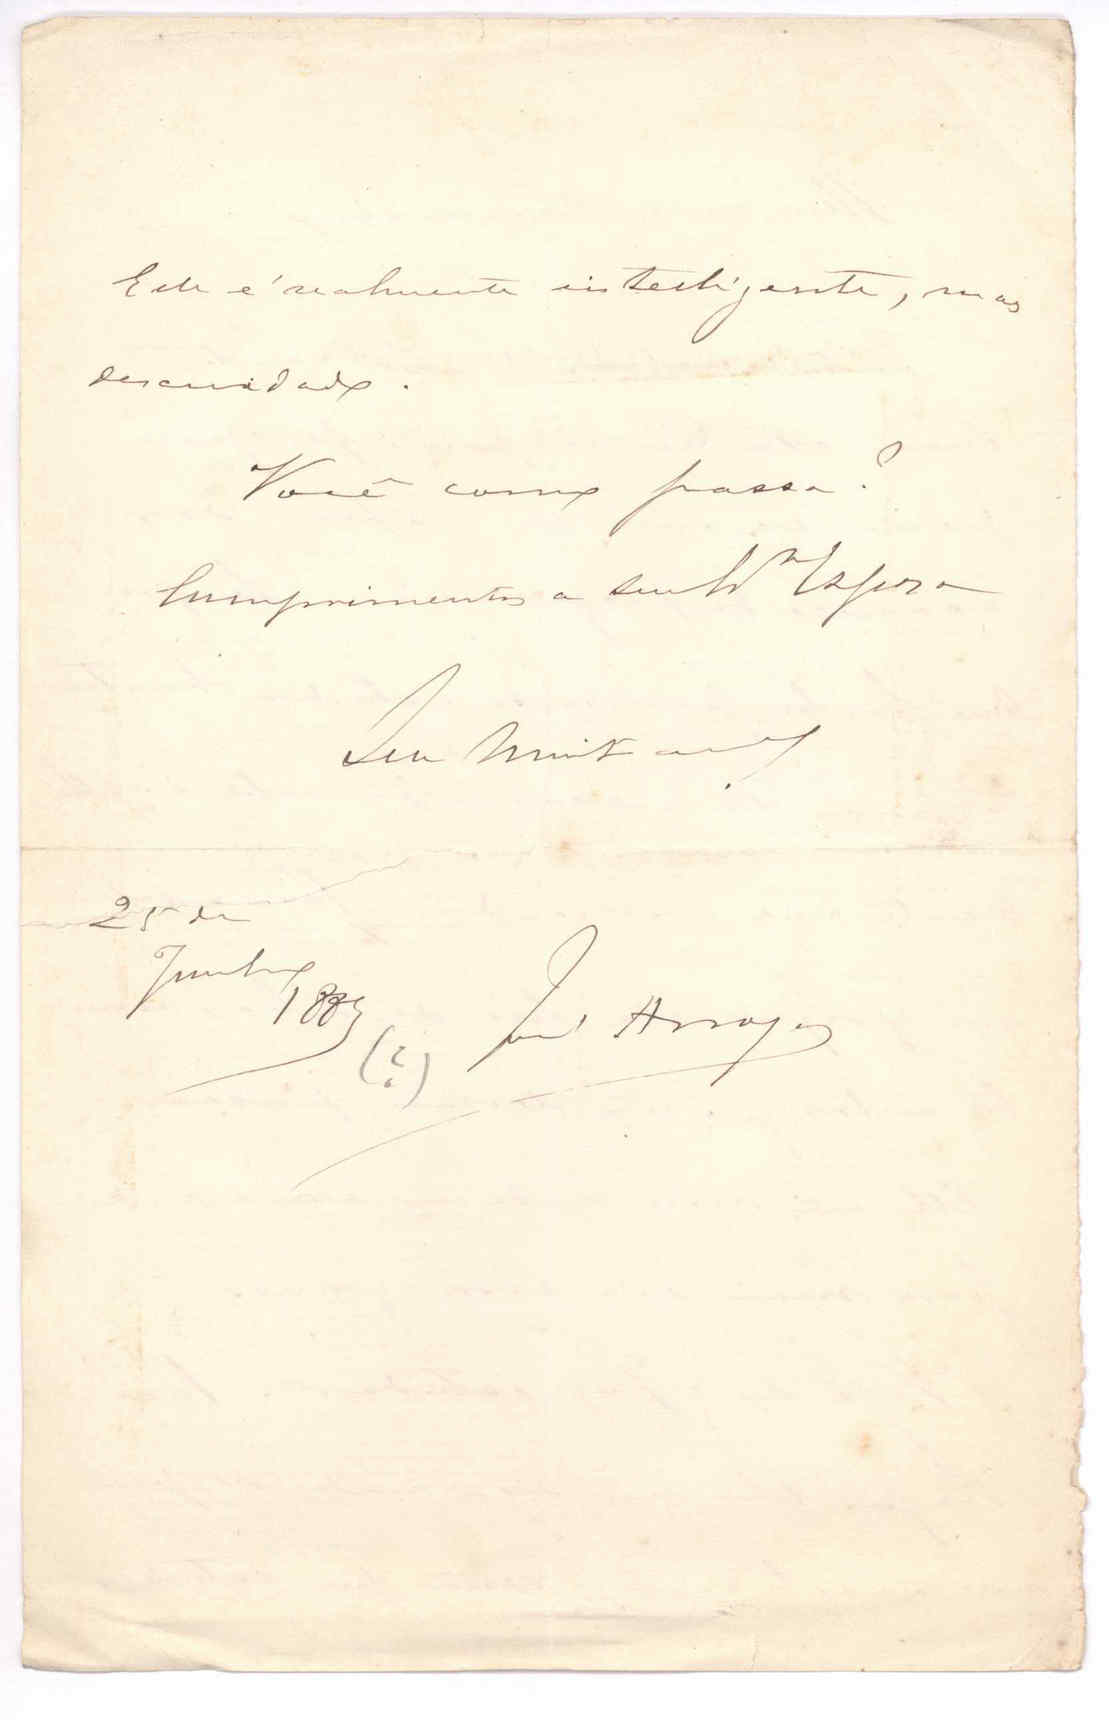 Este é realmente intelligente, mas
descuidado.
Você como passa?
Cumprimentos a seu Espoza
Seu Muito amº
25 de
Junho
1889
(?)
José Arroyo